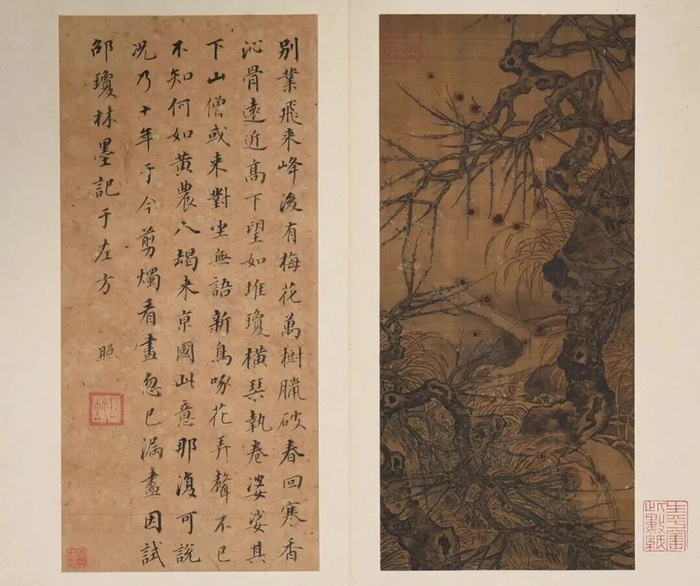 別業飛來峰後有梅花萬樹臘破春回寒香
沁骨遠近髙下望如堆瓊橫琴執卷婆娑其
下山僧或来對坐無語新鳥啄花弄聲不已
不知何如黃農人朅来京國此意那復可說
况乃十年于今剪燭看畫忽已漏盡因試
邵瓊林墨記于左方 照